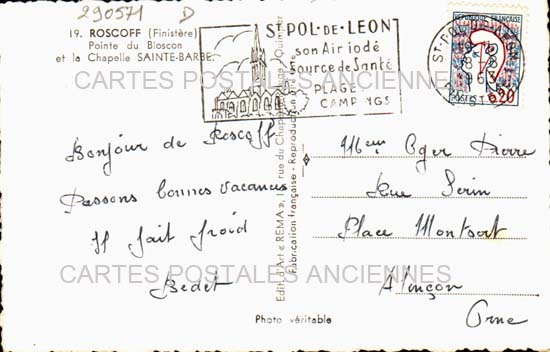 290571 D
19. ROSCOFF (Finistère)
Pointe du Bloscon
et la Chapelle SAINTE-BARBE.
ST-POL-DE-LEON
son Air iodé
Source de Santé
PLAGE
CAMPINGS
REPUBLIQUE FRANÇAISE
POSTES 0,20
ST-POL-DE-LEON
FINISTERE
CARTES POSTALES ANCIENNES
Bonjour de Roscoff
Passons bonnes vacances
Il fait froid
Bedet
Edit. d'Art « REMA », rue du Chapeau Rouge, Quimper
Fabrication française - Reproduction interdite
Oger Pierre
Rue
Place Montsort
Alençon
Orne
CARTES POSTALES ANCIENNES
Photo véritable